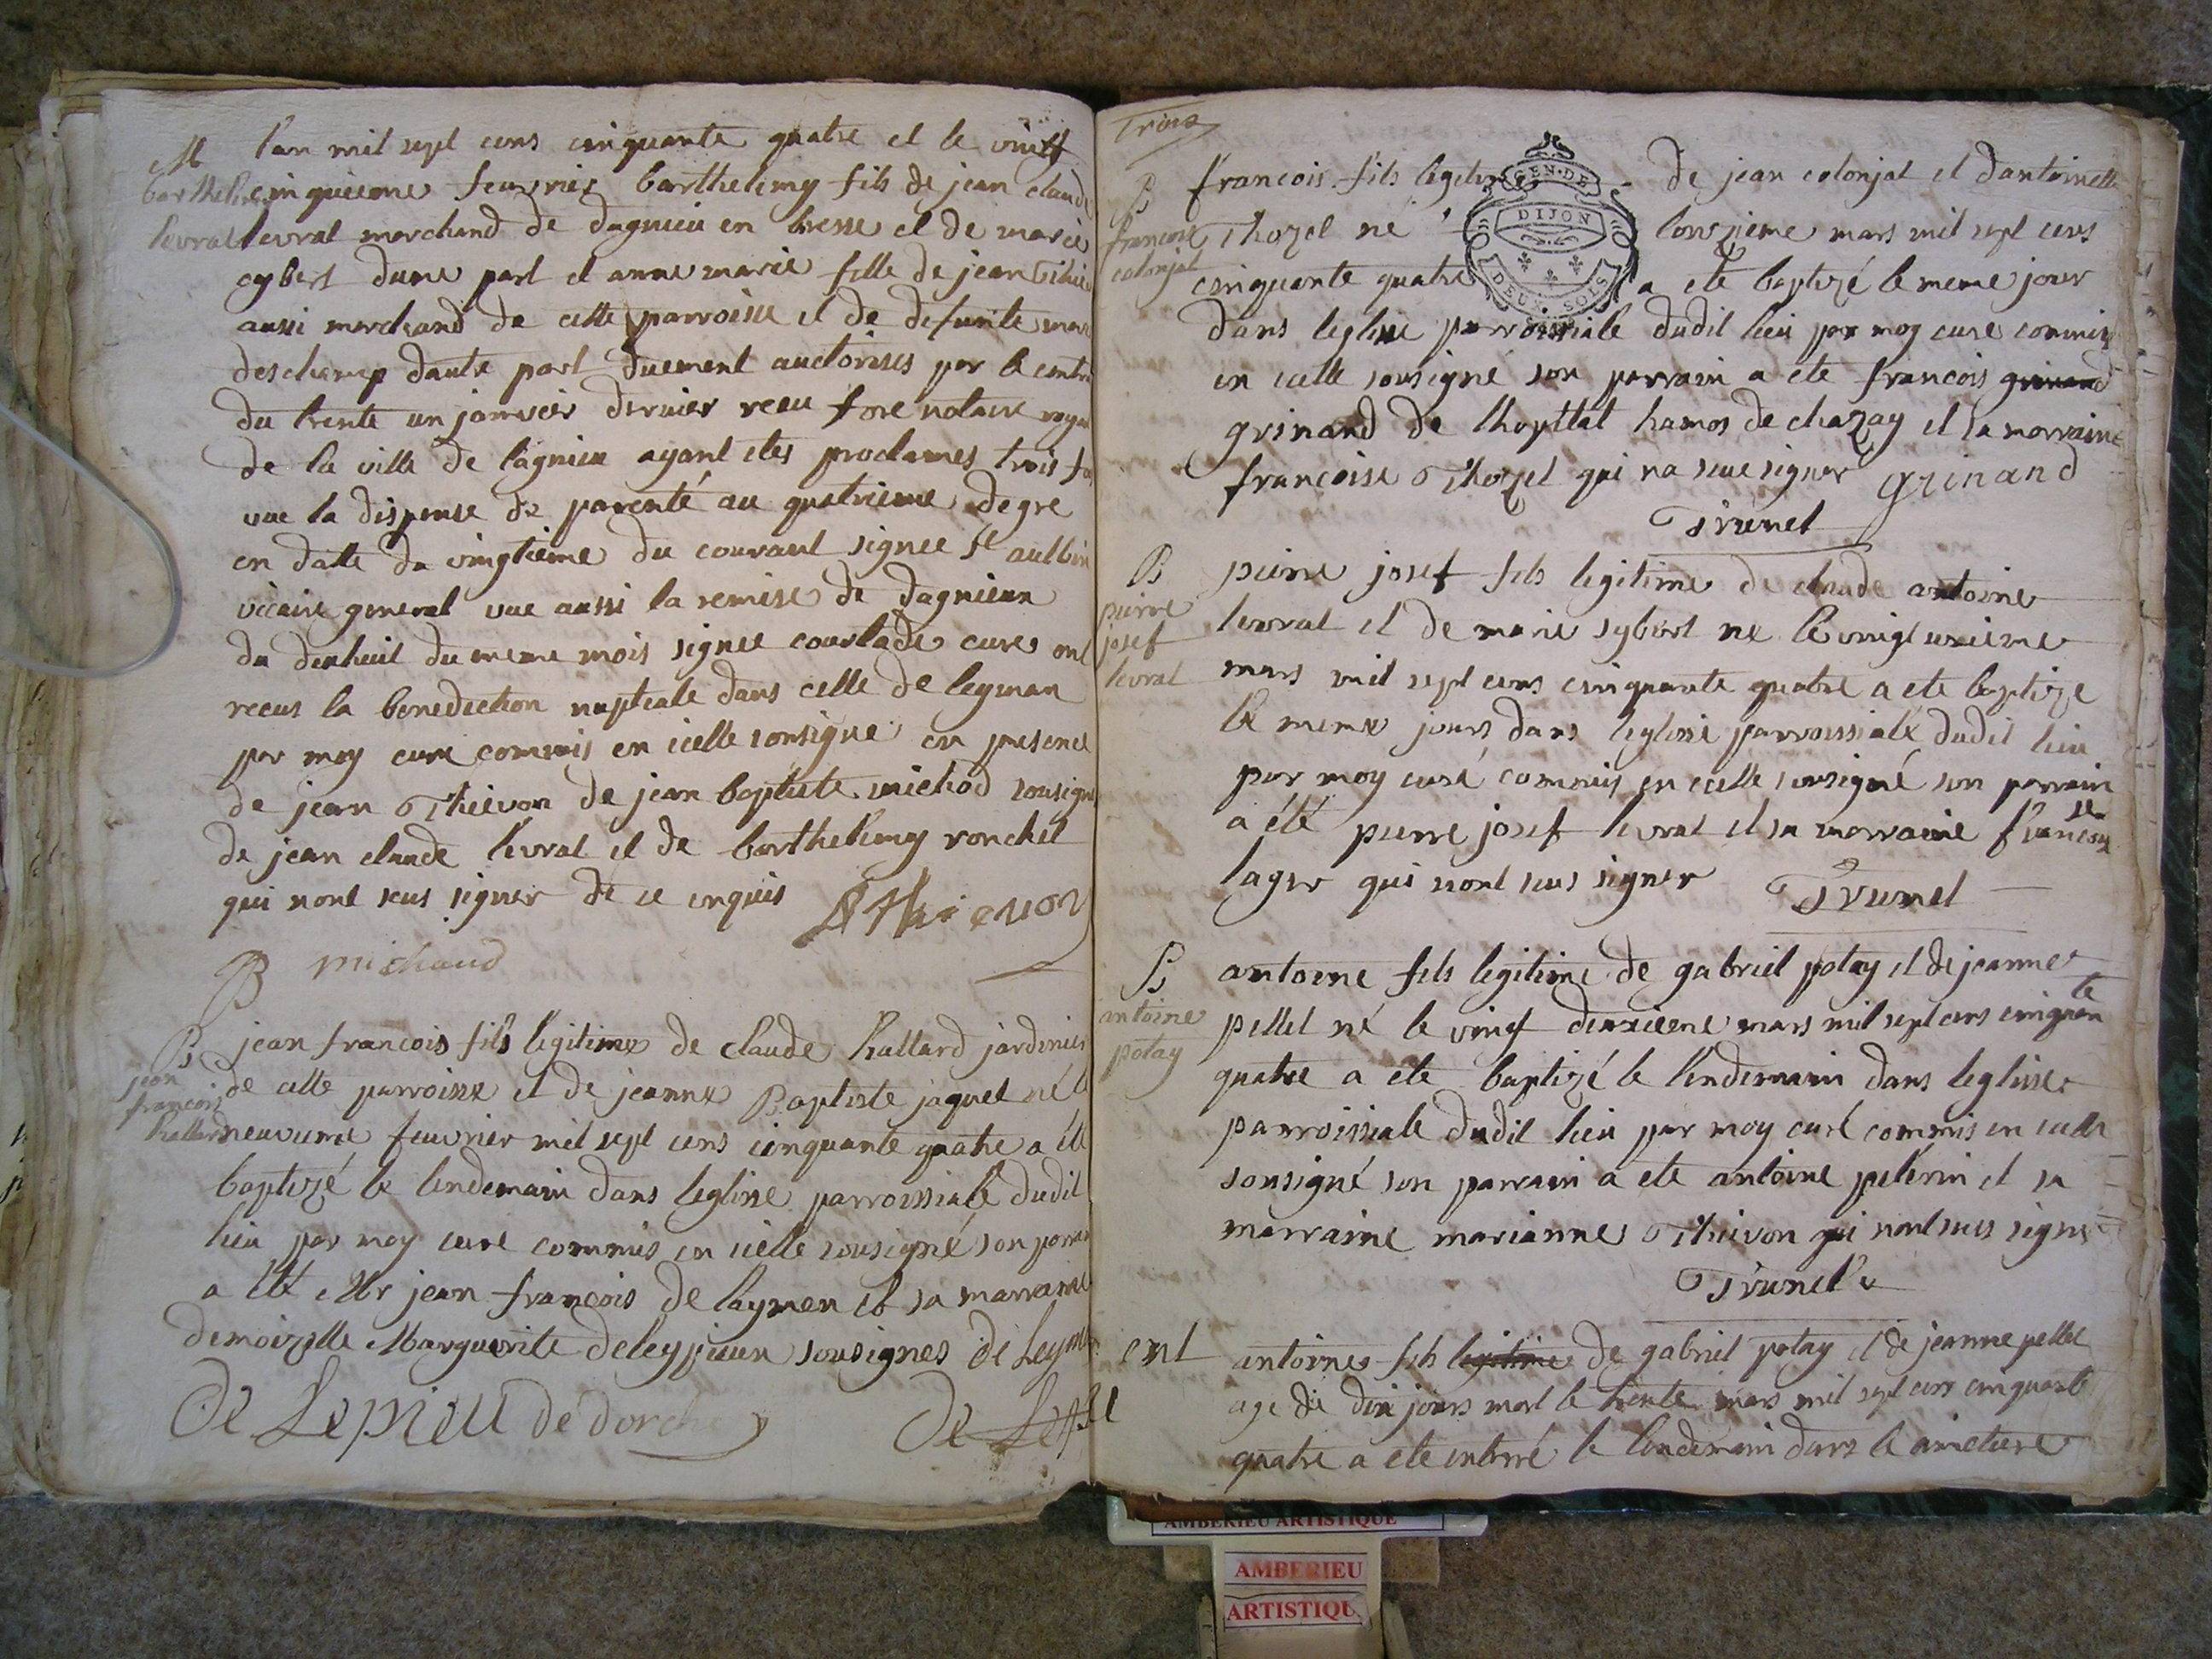 M lan mil sept cens cinquante quatre et le vingt
barthelemy cinquieme feuvrier barthelemy fils de jean claude
levrat levrat marchand de dagnieu en bresse et de marie
cybert dune part et anne marie fille de jean
aussi marchand de cette parroisse et de defunte
deschamp dautre part duement auctorises par le
du trente un janvier dernier receu fore notaire
de la ville de lagnieu ayant etes proclames trois
vue la dispense de parenté au quatrieme degre
en datte du vingtieme du courant signee st aulbin
vicaire general vue aussi la remise de dagnieux
du dixhuit du meme mois signee courlade cure ont
receus la benediction nuptiale dans celle de leyman
par moy cure commis en icelle sousigne en presence
de jean Thievon de jean baptiste michod
de jean claude levrat et de barthelemy ronchet
qui nont sceus signer de ce enquis Thievon
B michaud
B jean francois fils legitime de claude hallard jardinier
jean de cette parroisse et de jeanne Baptiste jaquet né
francois
hallard neuvieme feuvrier mil sept cens cinquante quatre a été
baptizé le lendemain dans leglise parroissiale dudit
lieu par moy curé commis en icelle sousigné son
a été Mr jean francois de laymen et sa marraine
demoizelle Marguerite deleypieu sousignes de
De Lepieu de dorche De
Trois
B francois fils legitime de jean colonjat et dantoinette
GEN. DE DIJON DEUX SOLS
francois Thozel né lonzieme mars mil sept cens
colonjat
cinquante quatre a ete baptizé le meme jour
dans leglise parroissiale dudit lieu par moy cure commis
en icelle sousigné son parrain a ete francois grinand
grinand de lhopttal hamos de chazay et sa marraine
francoise Thozel qui na sceue signer grinand
Trumel
B pierre josef fils legitime de claude antoine
pierre
josef levrat et de marie sybert ne le vingt unieme
levrat mars mil sept cens cinquante quatre a ete baptize
le meme jours dans leglise parroissiale dudit lieu
par moy curé commis en icelle sousigné son parrain
a été pierre josef levrat et sa marraine francoise
lager qui nont sceus signer Trumel
B antoine fils legitime de gabriel potay et de jeanne
antoine pellet né le vingt deuxieme mars mil sept cens cinquante
potay
quatre a ete baptizé le lendemain dans leglise
parroissiale dudit lieu par moy curé commis en icelle
sousigné son parrain a ete antoine pelerin et sa
marraine marianne Thievon qui nont sceus signe
Trumel
ent antoine fils legitime de gabriel potay et de jeanne pellet
age de dix jours mort le trente mars mil sept cens cinquante
quatre a ete enterré le lendemain dans le cimetiere
AMBERIEU ARTISTIQUE
AMBERIEU
ARTISTIQU